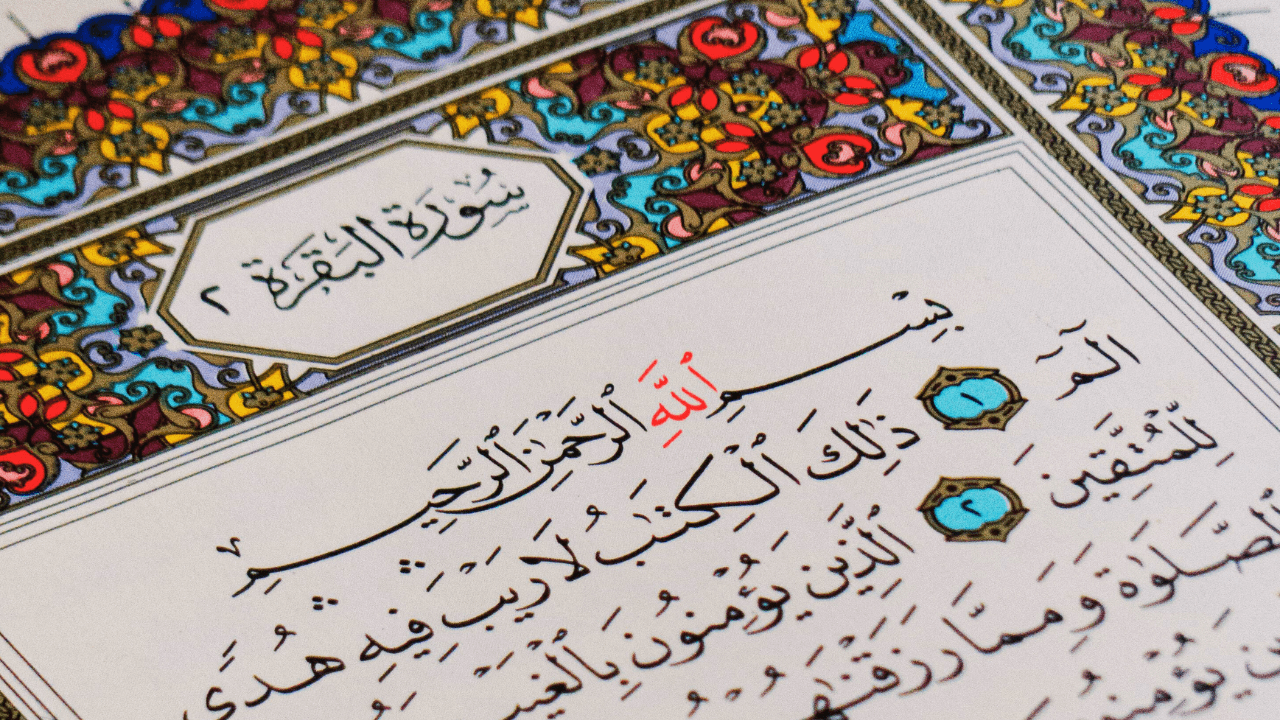 سُورَة البَقَرَة ٢
بِسْمِ ٱللَّهِ ٱلرَّحْمَٰنِ ٱلرَّحِيمِ
الٓمٓ ١ ذَٰلِكَ ٱلْكِتَٰبُ لَا رَيْبَ ۛ فِيهِ ۛ هُدًى
لِّلْمُتَّقِينَ ٢ ٱلَّذِينَ يُؤْمِنُونَ بِٱلْغَيْبِ
ٱلصَّلَوٰةَ وَمِمَّا رَزَقْنَٰهُمْ